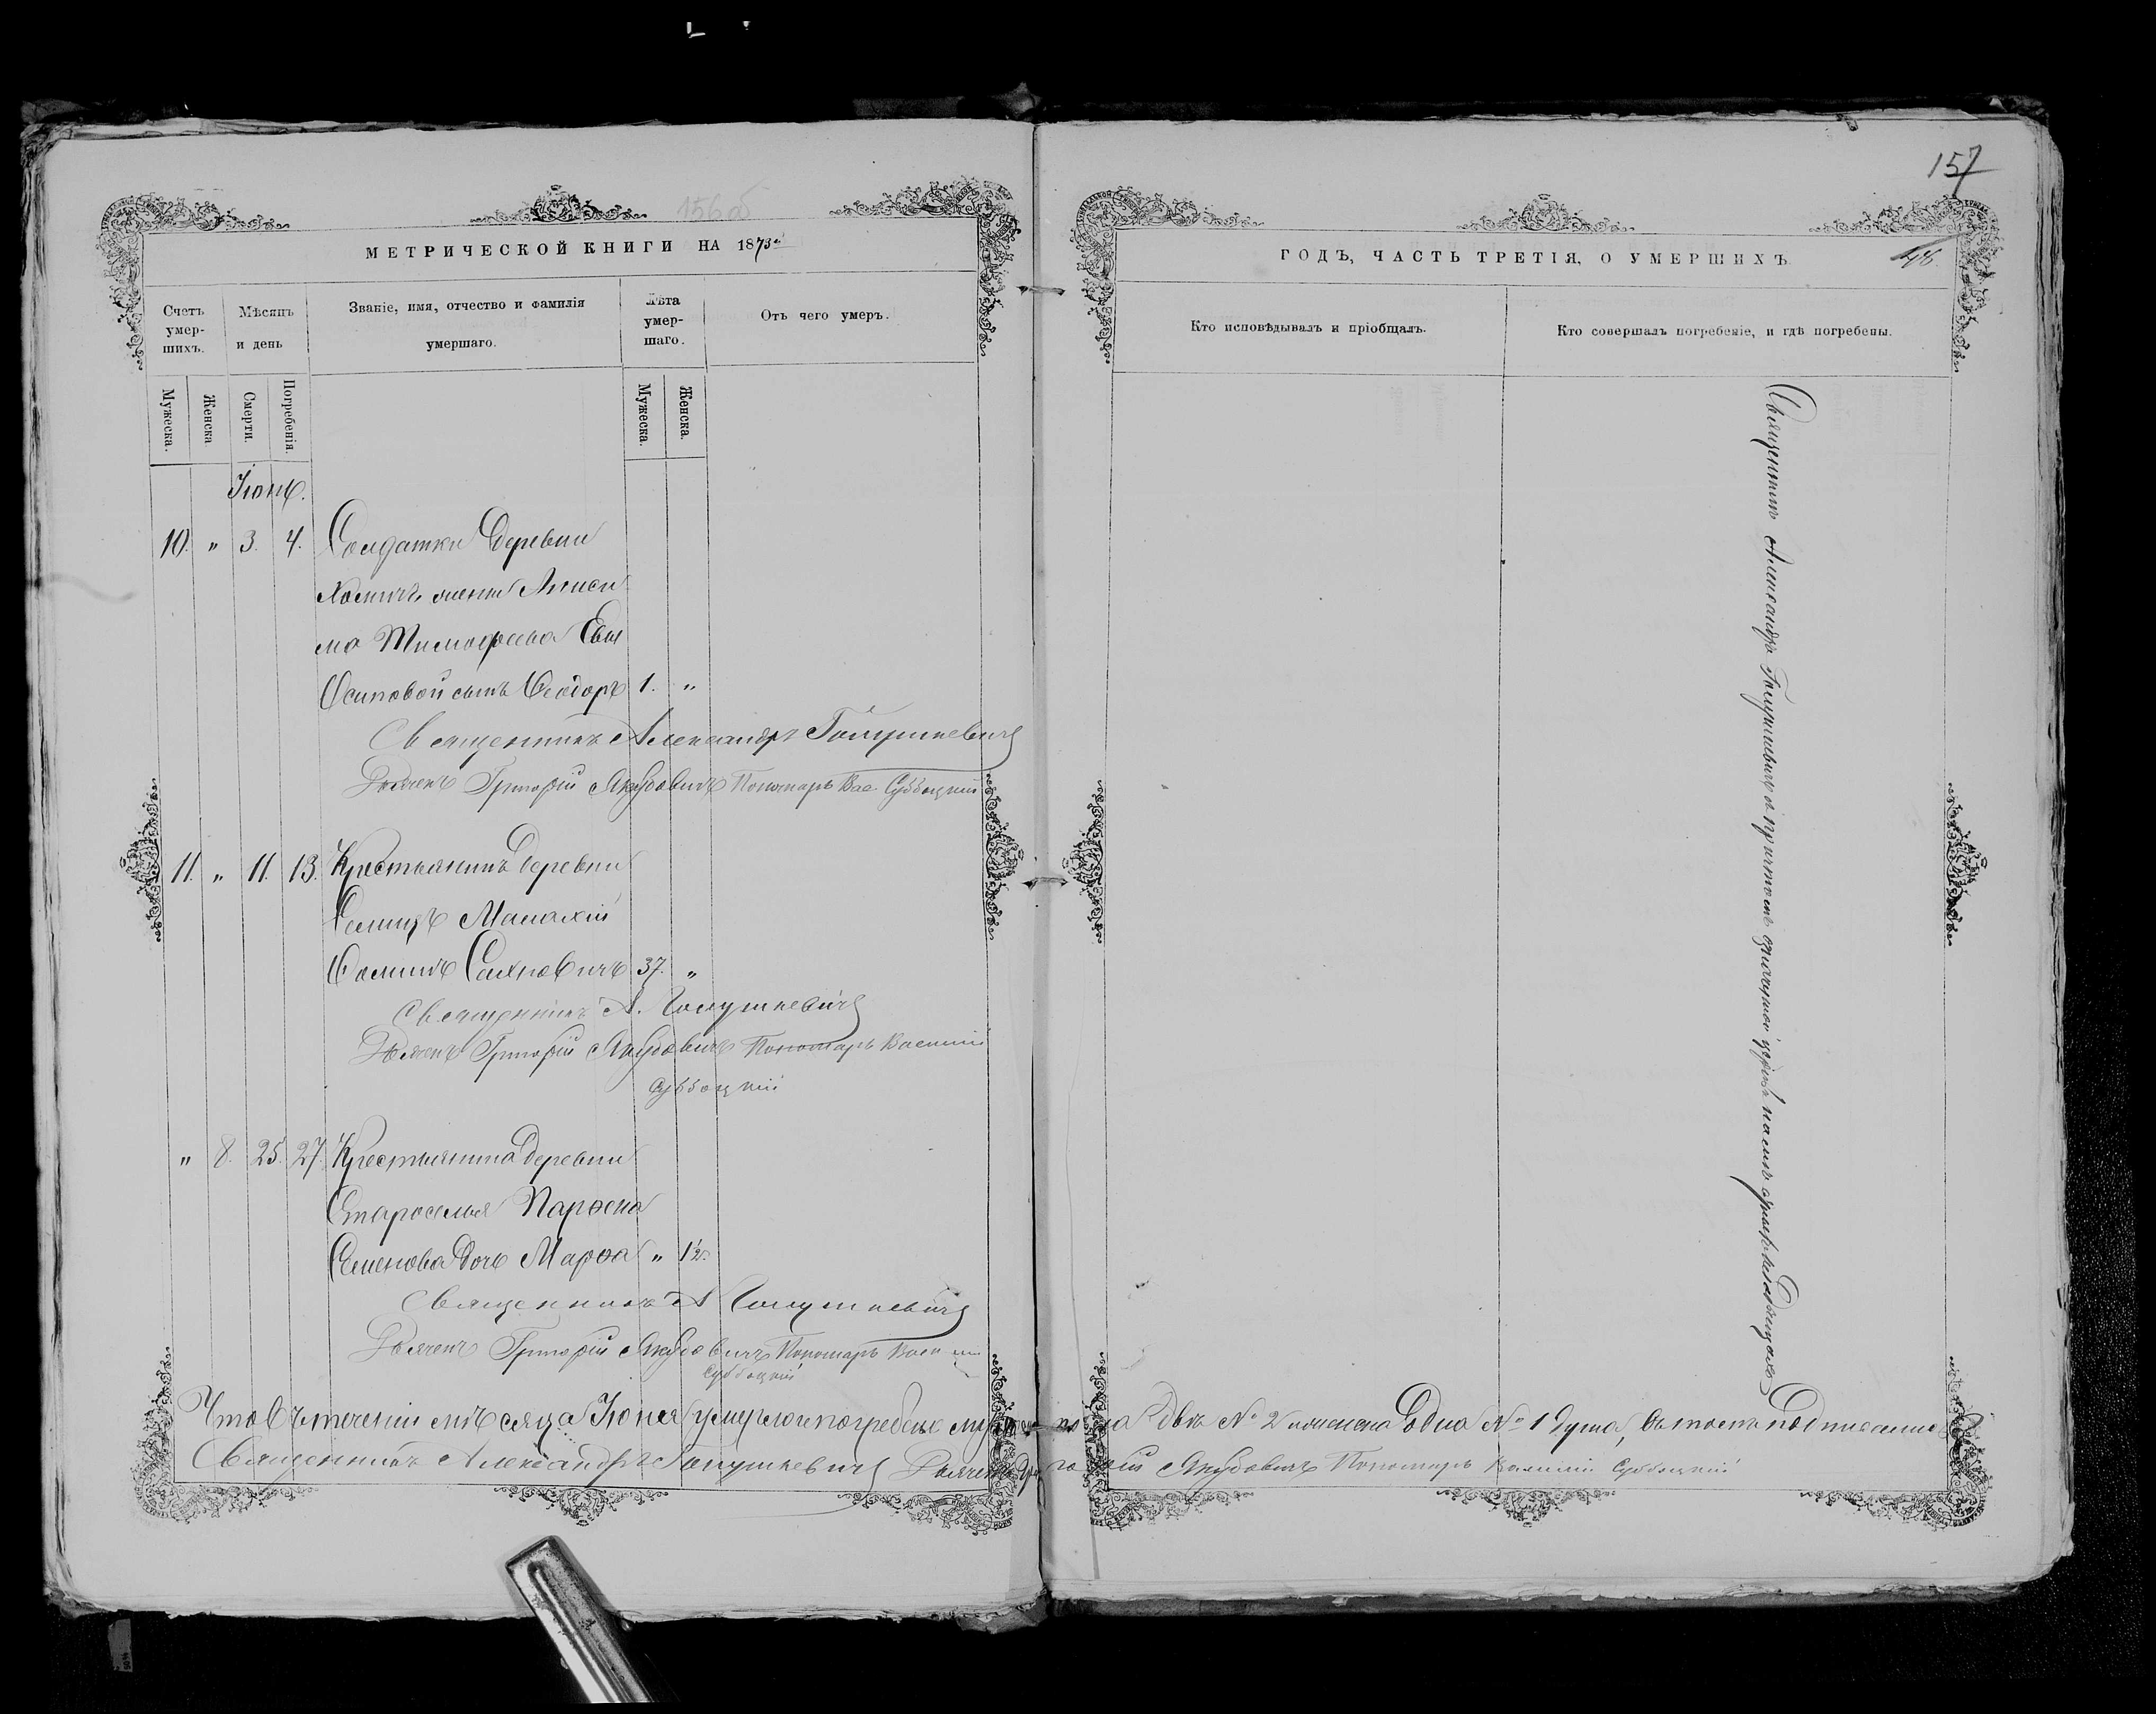 156об
МЕТРИЧЕСКОЙ КНИГИ НА 1873й
Счетъ умер-шихъ.
Мѣсяцъ и день
Званіе, имя, отчество и фамилія умершаго.
Лѣта умер-шаго.
Отъ чего умеръ.
Мужеска.
Женска
Смерти.
Погребенія.
Мужеска.
Женска.
Іюнь.
10. " 3. 4. Солдатки деревни
жены Аниси
ма Тимофеева Евы
Осиповой сынъ Ѳеодоръ 1. "
Священникъ Александръ Голушкевичъ
Дьячекъ Григорій Якубовичъ Пономарь Вас. Суббоцкій
11. " 11. 13. Крестьянинъ деревни
Селищъ Малахій
Ѳоминъ Сахновичъ 37. "
Священникъ А. Голушкевичъ
Дьячекъ Григорій Якубовичъ Пономарь Василій
Суббоцкій
" 8. 25. 27. Крестьянина деревни
Староселья Парѳена
Семенова дочь Марѳа " 1½
Священникъ А Голушкевичъ
Дьячекъ Григорій Якубовичъ Пономарь Васи
Суббоцкій
Что въ теченіи мѣсяца Іюня умерло и погребено пола два № 2 женска одна № 1 душа, въ томъ подписались
Священникъ Александръ Голушкевичъ Дьячекъ Григорій Якубовичъ Пономарь Василій Суббоцкій
157
ГОДЪ, ЧАСТЬ ТРЕТІЯ, О УМЕРШИХЪ
46.
Кто исповѣдывалъ и пріобщалъ.
Кто совершалъ погребеніе, и гдѣ погребены.
Священникъ Александръ Голушкевичъ съ причтомъ на